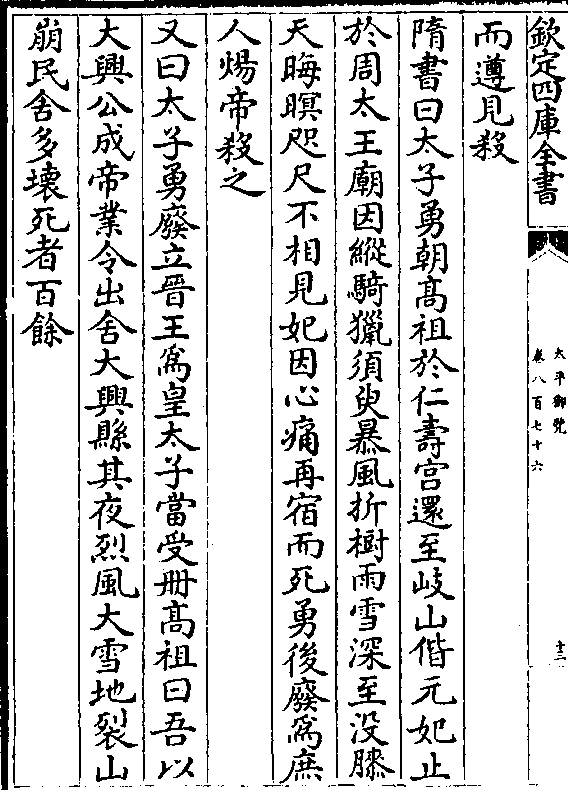 欽定四庫全書
太平御覽
卷八百七十六
十三
而遵見殺
隋書曰太子勇朝髙祖於仁壽宫還至岐山偕元妃止
於周太王廟因縱騎獵須臾暴風折樹雨雪深至没膝
天晦暝咫尺不相見妃因心痛再宿而死勇後廢為庶
人煬帝殺之
又曰太子勇廢立晉王為皇太子當受册髙祖曰吾以
大興公成帝業令出舍大興縣其夜烈風大雪地裂山
崩民舍多壊死者百餘